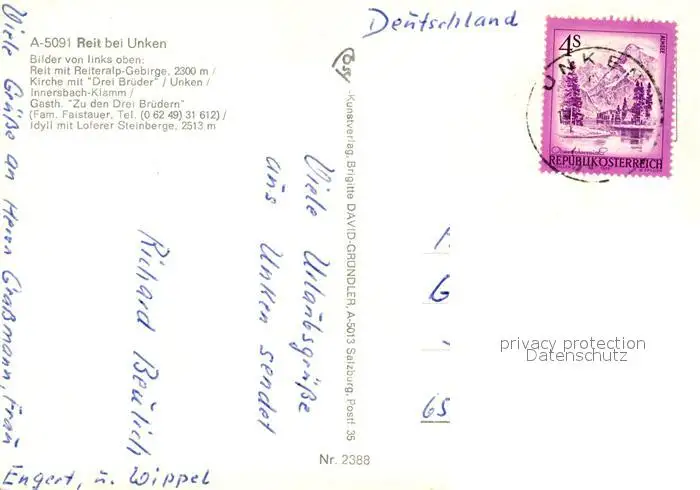 A-5091 Reit bei Unken
Bilder von links oben:
Reit mit Reiteralp-Gebirge, 2300 m /
Kirche mit "Drei Brüder" / Unken /
Innersbach-Klamm /
Gasth. "Zu den Drei Brüdern"
(Fam. Faistauer, Tel. (0 62 49) 31 612) /
Idyll mit Loferer Steinberge, 2513 m
Viele Urlaubsgrüße
aus Unken sendet
Richard Beulich
Viele Grüße an Herrn Graßmann, Frau
Engert, u. Wippel
-Kunstverlag, Brigitte DAVID-GRÜNDLER, A-5013 Salzburg, Postf. 35
Nr. 2388
Deutschland
4 S
ALMSEE
REPUBLIK ÖSTERREICH
UNKEN
G
65
privacy protection
Datenschutz